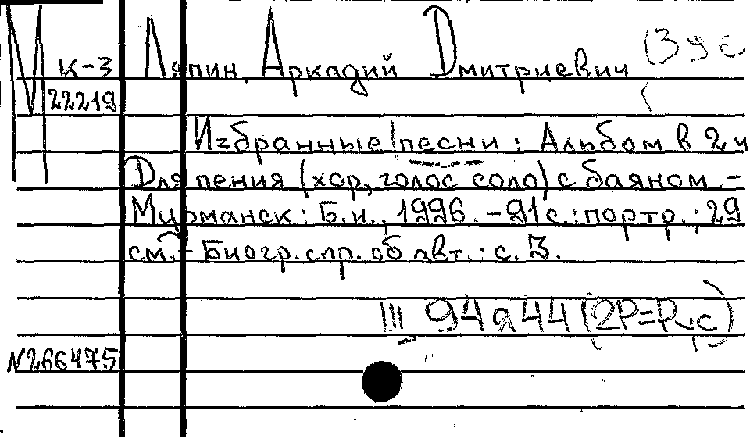 М К-3 Ляпин, Аркадий Дмитриевич (3 экз
22219
Избранные песни : Альбом в 2 ч
Для пения (хор, голос соло) с баяном. -
Мурманск : Б.и., 1996. - 91 с. : портр. ; 29
см. - Биогр. спр. об авт. : с. 3.
III 94 я 44 (2Р=Рус)
N266475